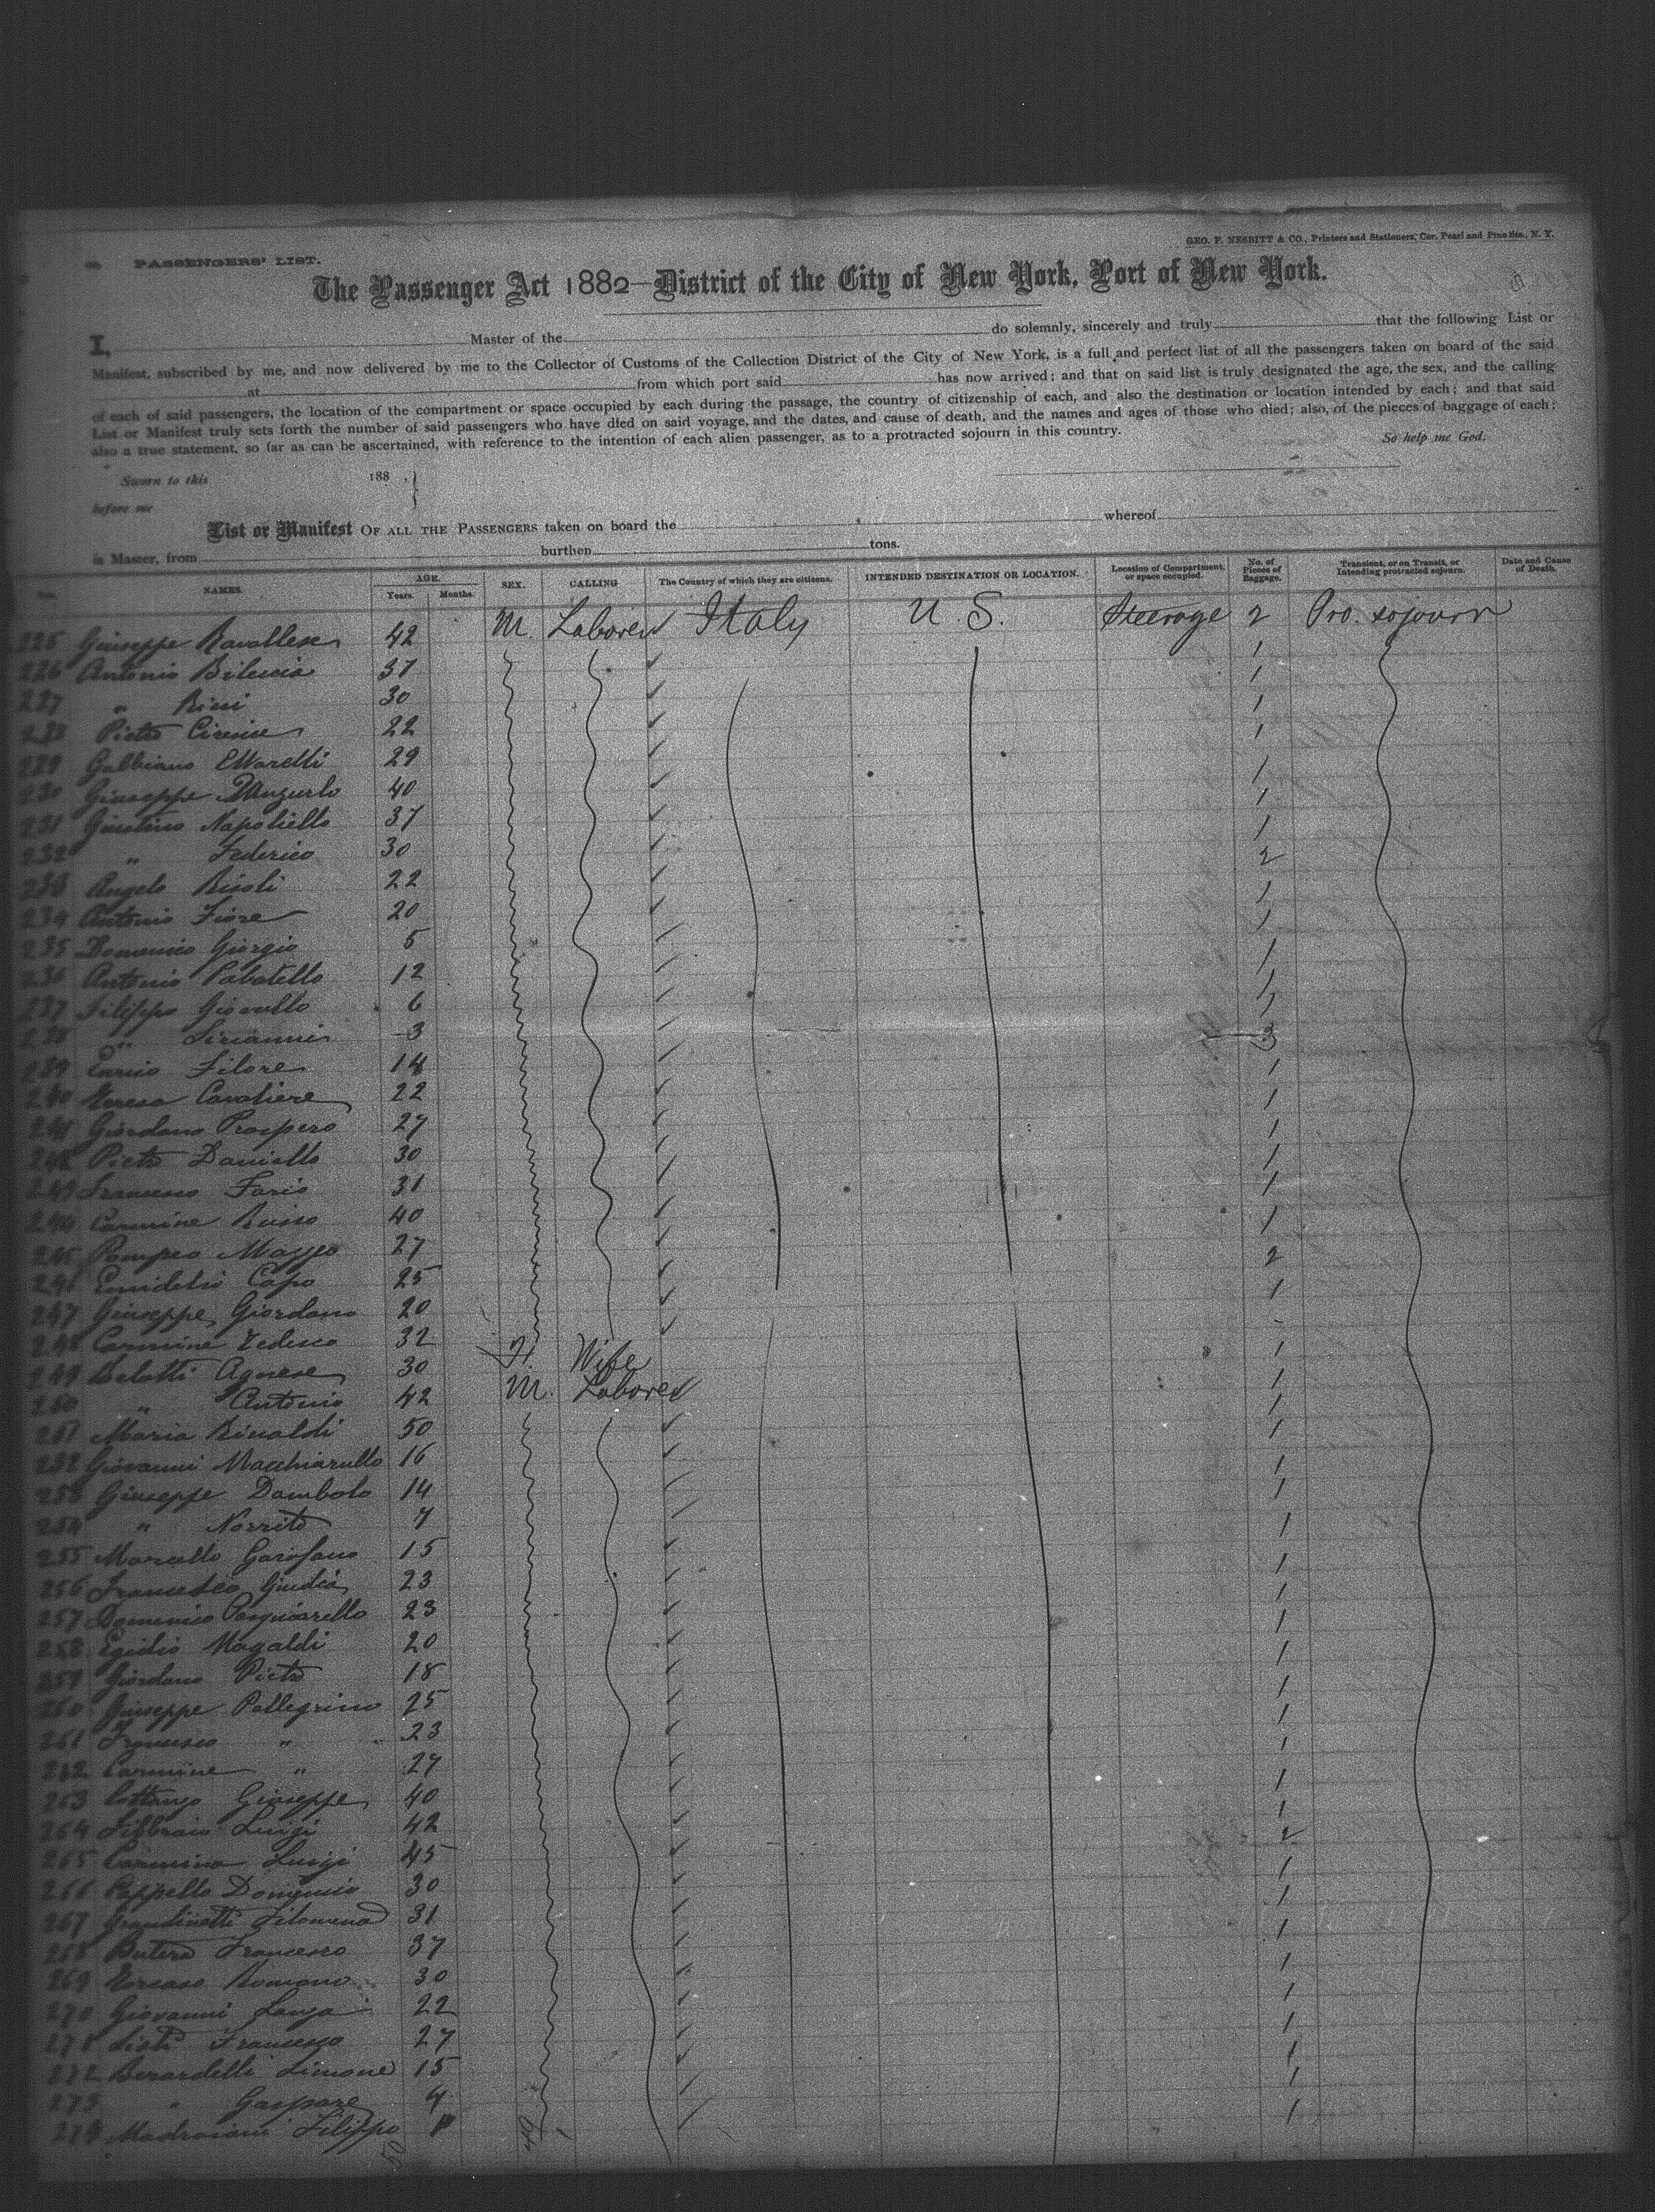 GEO. F. NESBITT & CO., Printers and Stationers, Cor. Pearl and Pine Sts., N. Y.
PASSENGERS' LIST.
The Passenger Act 1882—District of the City of New York, Port of New York.
I, Master of the do solemnly, sincerely and truly that the following List or
Manifest, subscribed by me, and now delivered by me to the Collector of Customs of the Collection District of the City of New York, is a full and perfect list of all the passengers taken on board of the said
at from which port said has now arrived; and that on said list is truly designated the age, the sex, and the calling
of each of said passengers, the location of the compartment or space occupied by each during the passage, the country of citizenship of each, and also the destination or location intended by each; and that said
List or Manifest truly sets forth the number of said passengers who have died on said voyage, and the dates, and cause of death, and the names and ages of those who died; also, of the pieces of baggage of each;
also a true statement, so far as can be ascertained, with reference to the intention of each alien passenger, as to a protracted sojourn in this country. So help me God.
Sworn to this 188
before me
List or Manifest OF ALL THE PASSENGERS taken on board the whereof
is Master, from burthen tons.
NAMES. AGE. Years. Months. SEX. CALLING The Country of which they are citizens. INTENDED DESTINATION OR LOCATION. Location of Compartment, or space occupied. No. of Pieces of Baggage. Transient, or on Transit, or Intending protracted sojourn. Date and Cause of Death.
225 Giuseppe Ravallese 42 M. Laborer Italy U. S. Steerage 2 Pro. sojourn
226 Antonio 37 1
227 " 30 1
228 Pietro 22 1
229 Gabbiano 29 1
230 Giuseppe 40 1
231 Giustino Napoliello 37 1
232 " Federico 30 1
233 Angelo 22 2
234 Antonio Fiore 20 1
235 Domenico Giorgio 5 1
236 Antonio 12 1
237 Filippo 6 1
238 " 3 1
239 Filore 14 3
240 Teresa Cavaliere 22 1
241 Giordano Prospero 27 1
242 Pietro Daniello 30 1
243 Francesco 31 1
244 Carmine Russo 40 1
245 Pompeo Mazzeo 27 1
246 Capo 25 2
247 Giuseppe Giordano 20 1
248 Carmine Tedesco 32
249 Belotti Agnese 30 F. Wife 1
250 " Antonio 42 M. Laborer 1
251 Maria Rinaldi 50 1
252 Giovanni Macchiarullo 16 1
253 Giuseppe Dambolo 14 1
254 " Norrito 7 1
255 Marcello Garofano 15 1
256 Francesco Giudici 23 1
257 Domenico 23 1
258 Egidio Magaldi 20 1
259 Giordano Pietro 18 1
260 Giuseppe Pellegrino 25 1
261 Francesco " 23 1
262 Carmine " 27 1
263 Giuseppe 40 1
264 Luigi 42 1
265 Luigi 45 2
266 Domenico 30 1
267 Grandinetti Filomena 31 1
268 Butera Francesco 37 1
269 Romano 30 1
270 Giovanni 22 1
271 Francesco 27 1
272 Berardelli Simone 15 1
273 " Gaspare 1
274 Filippo 1